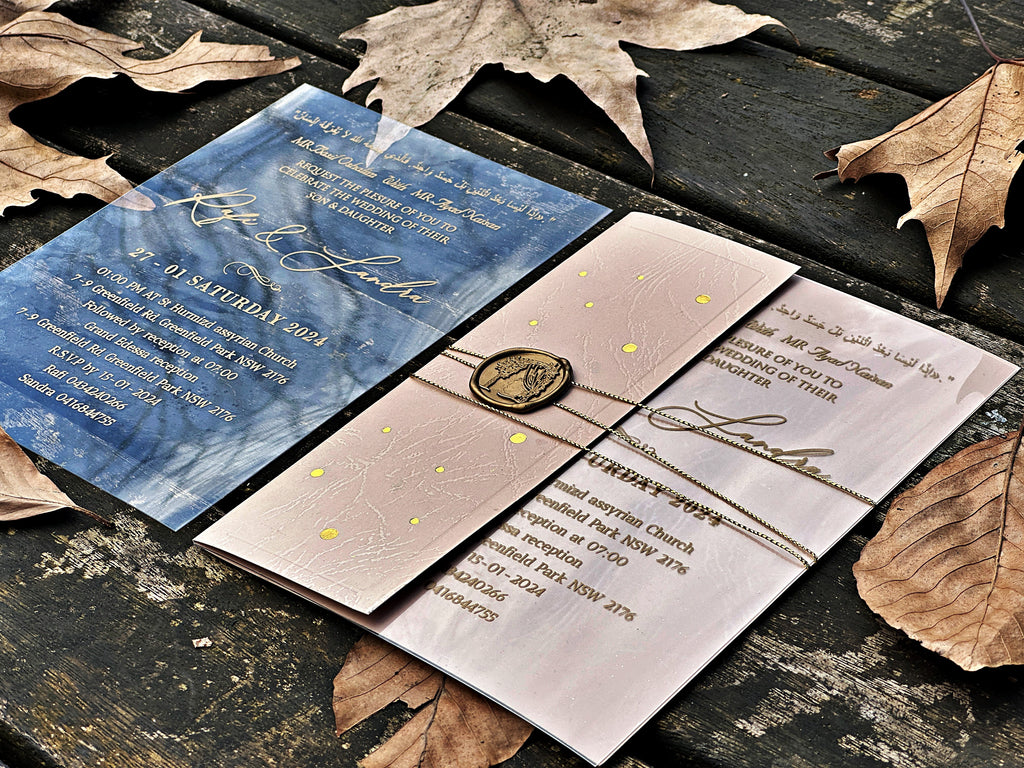 MR
With MR
REQUEST THE PLESURE OF YOU TO
CELEBRATE THE WEDDING OF THEIR
SON & DAUGHTER
& Sandra
27 - 01 SATURDAY 2024
01:00 PM AT St Hurmizd assyrian Church
7-9 Greenfield Rd, Greenfield Park NSW 2176
Followed by reception at 07:00
Grand Edessa reception
7-9 Greenfield Rd Greenfield Park NSW 2176
R.S.V.P by 15-01-2024
Rafi 0424240266
Sandra 0416844755
With MR
PLESURE OF YOU TO
WEDDING OF THEIR
DAUGHTER
Sandra
URDAY 2024
mizd assyrian Church
eenfield Park NSW 2176
eception at 07:00
essa reception
Greenfield Park NSW 2176
15-01-2024
0424240266
0416844755